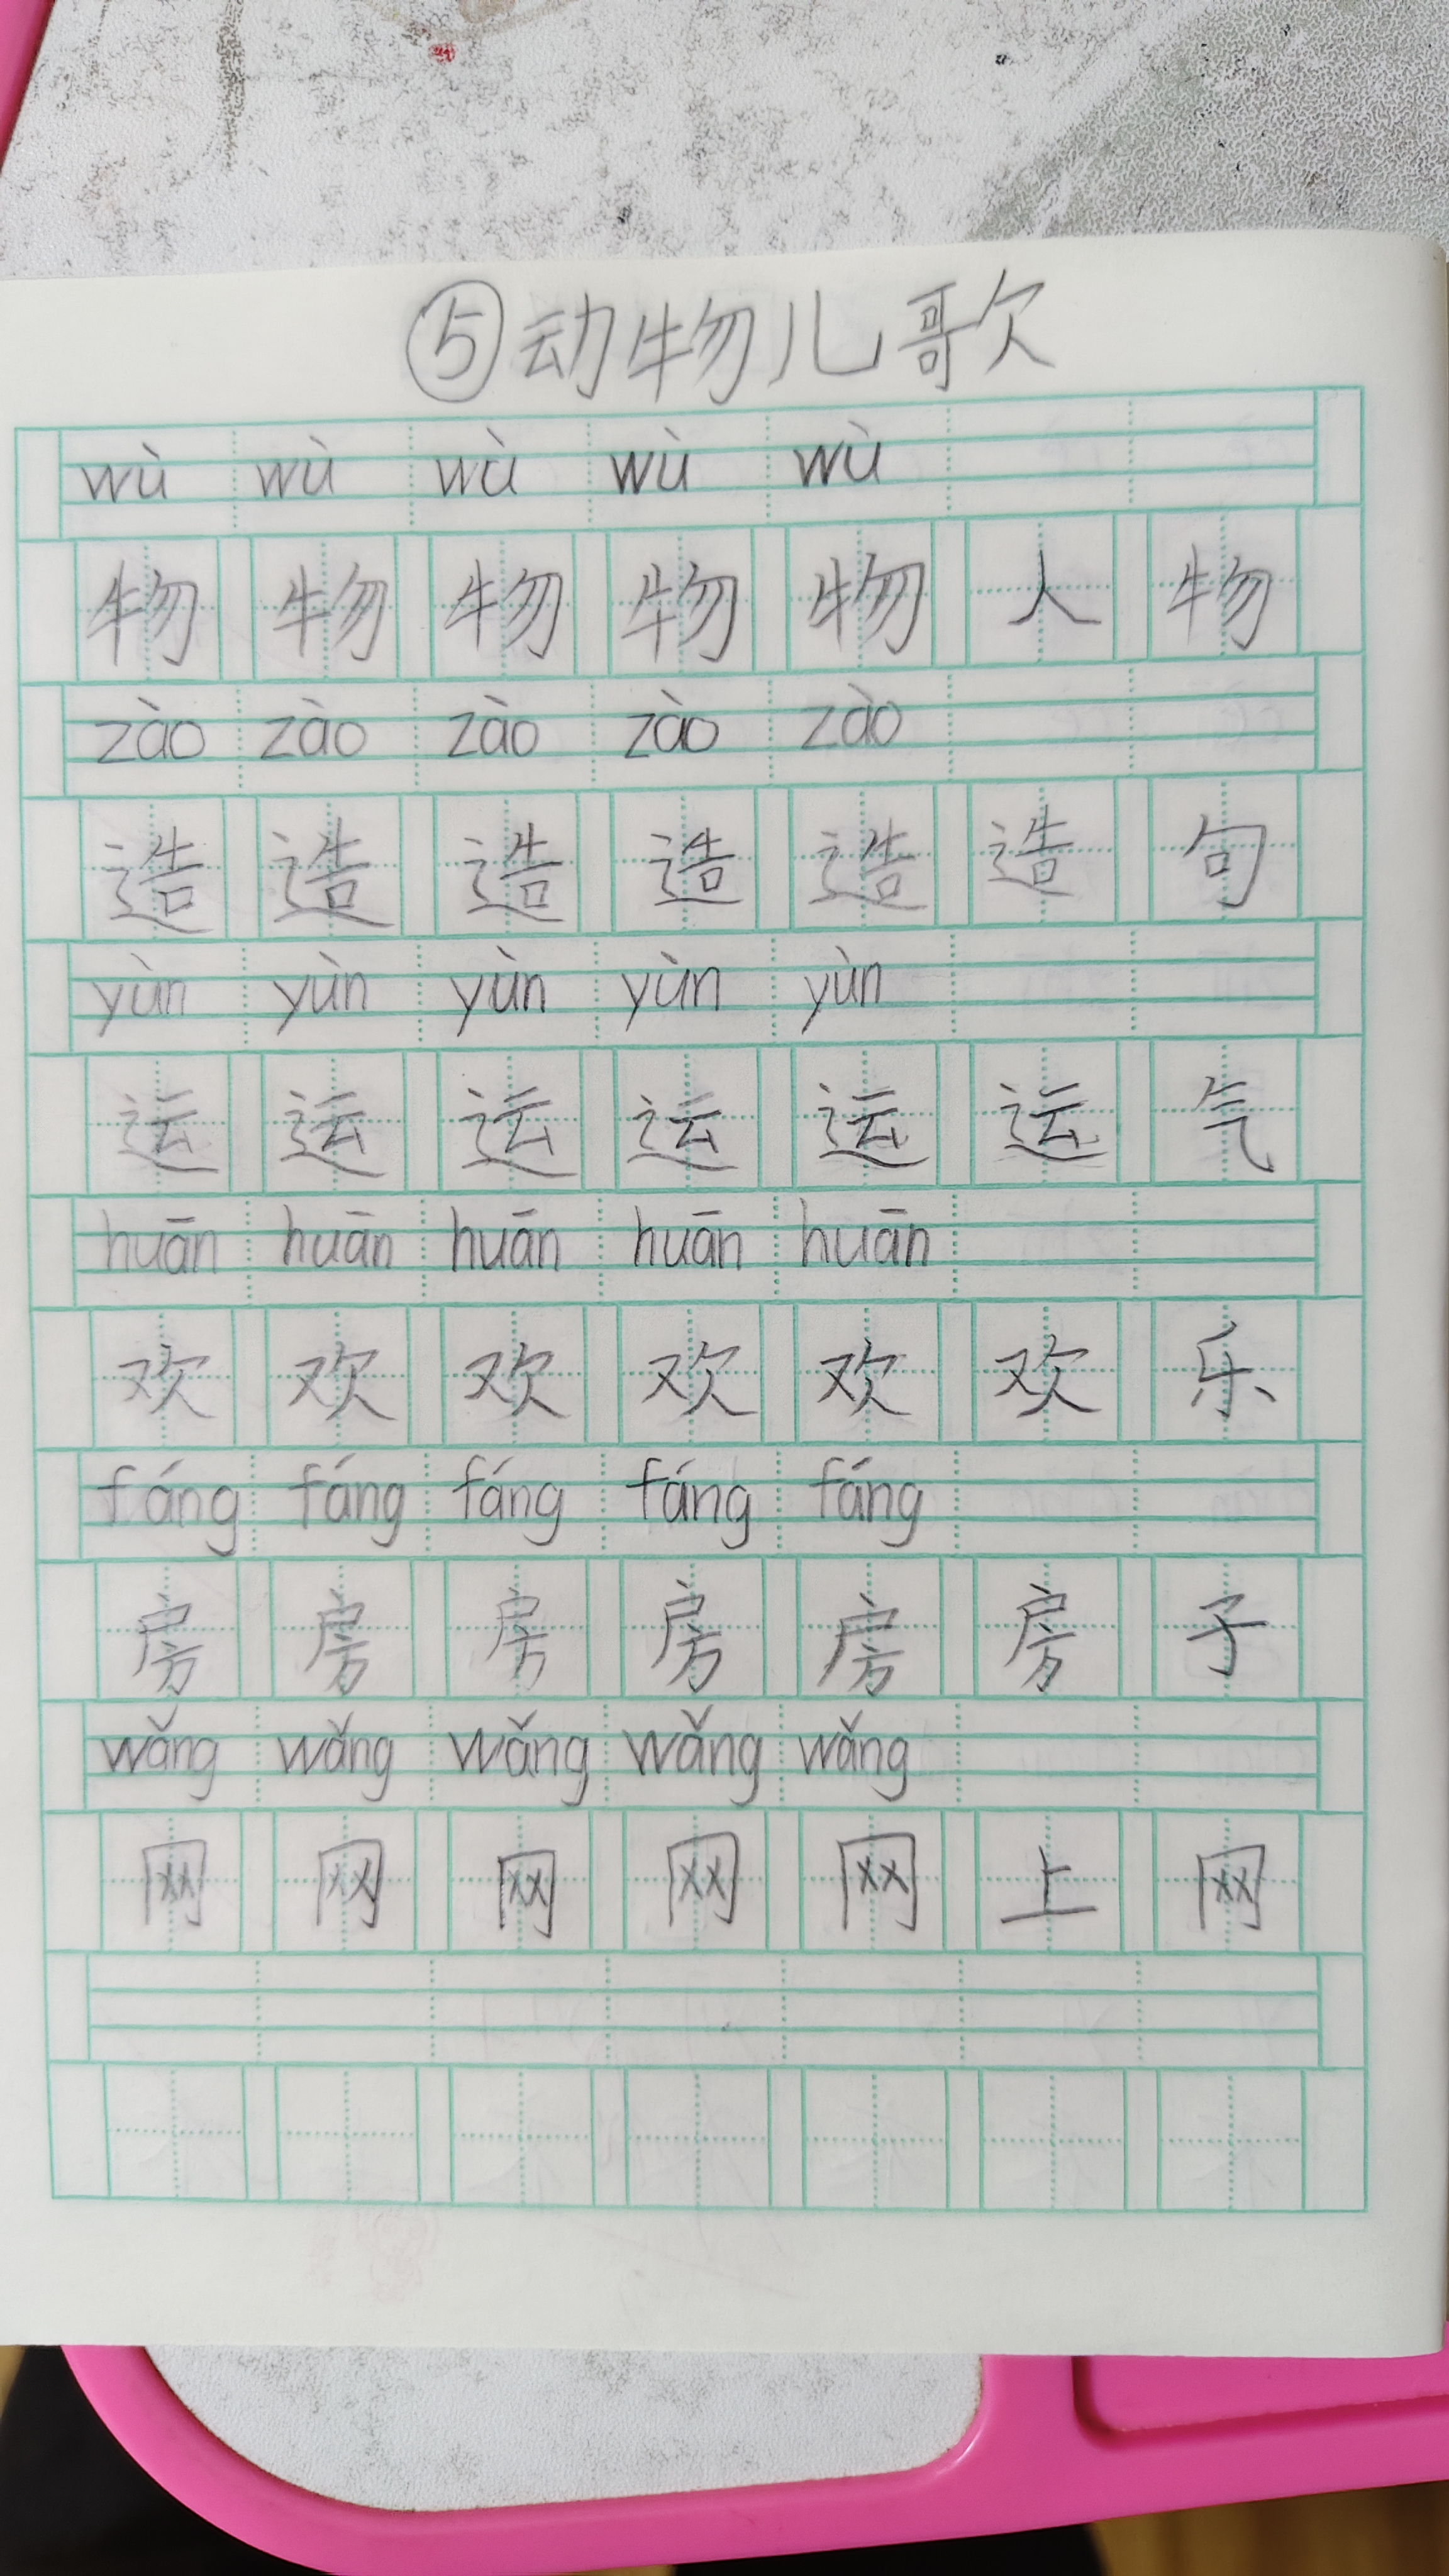 ⑤动物儿歌
wù wù wù wù wù
物 物 物 物 物 人 物
zào zào zào zào zào
造 造 造 造 造 造 句
yùn yùn yùn yùn yùn
运 运 运 运 运 运 气
huān huān huān huān huān
欢 欢 欢 欢 欢 欢 乐
fáng fáng fáng fáng fáng
房 房 房 房 房 房 子
wǎng wǎng wǎng wǎng wǎng
网 网 网 网 网 上 网